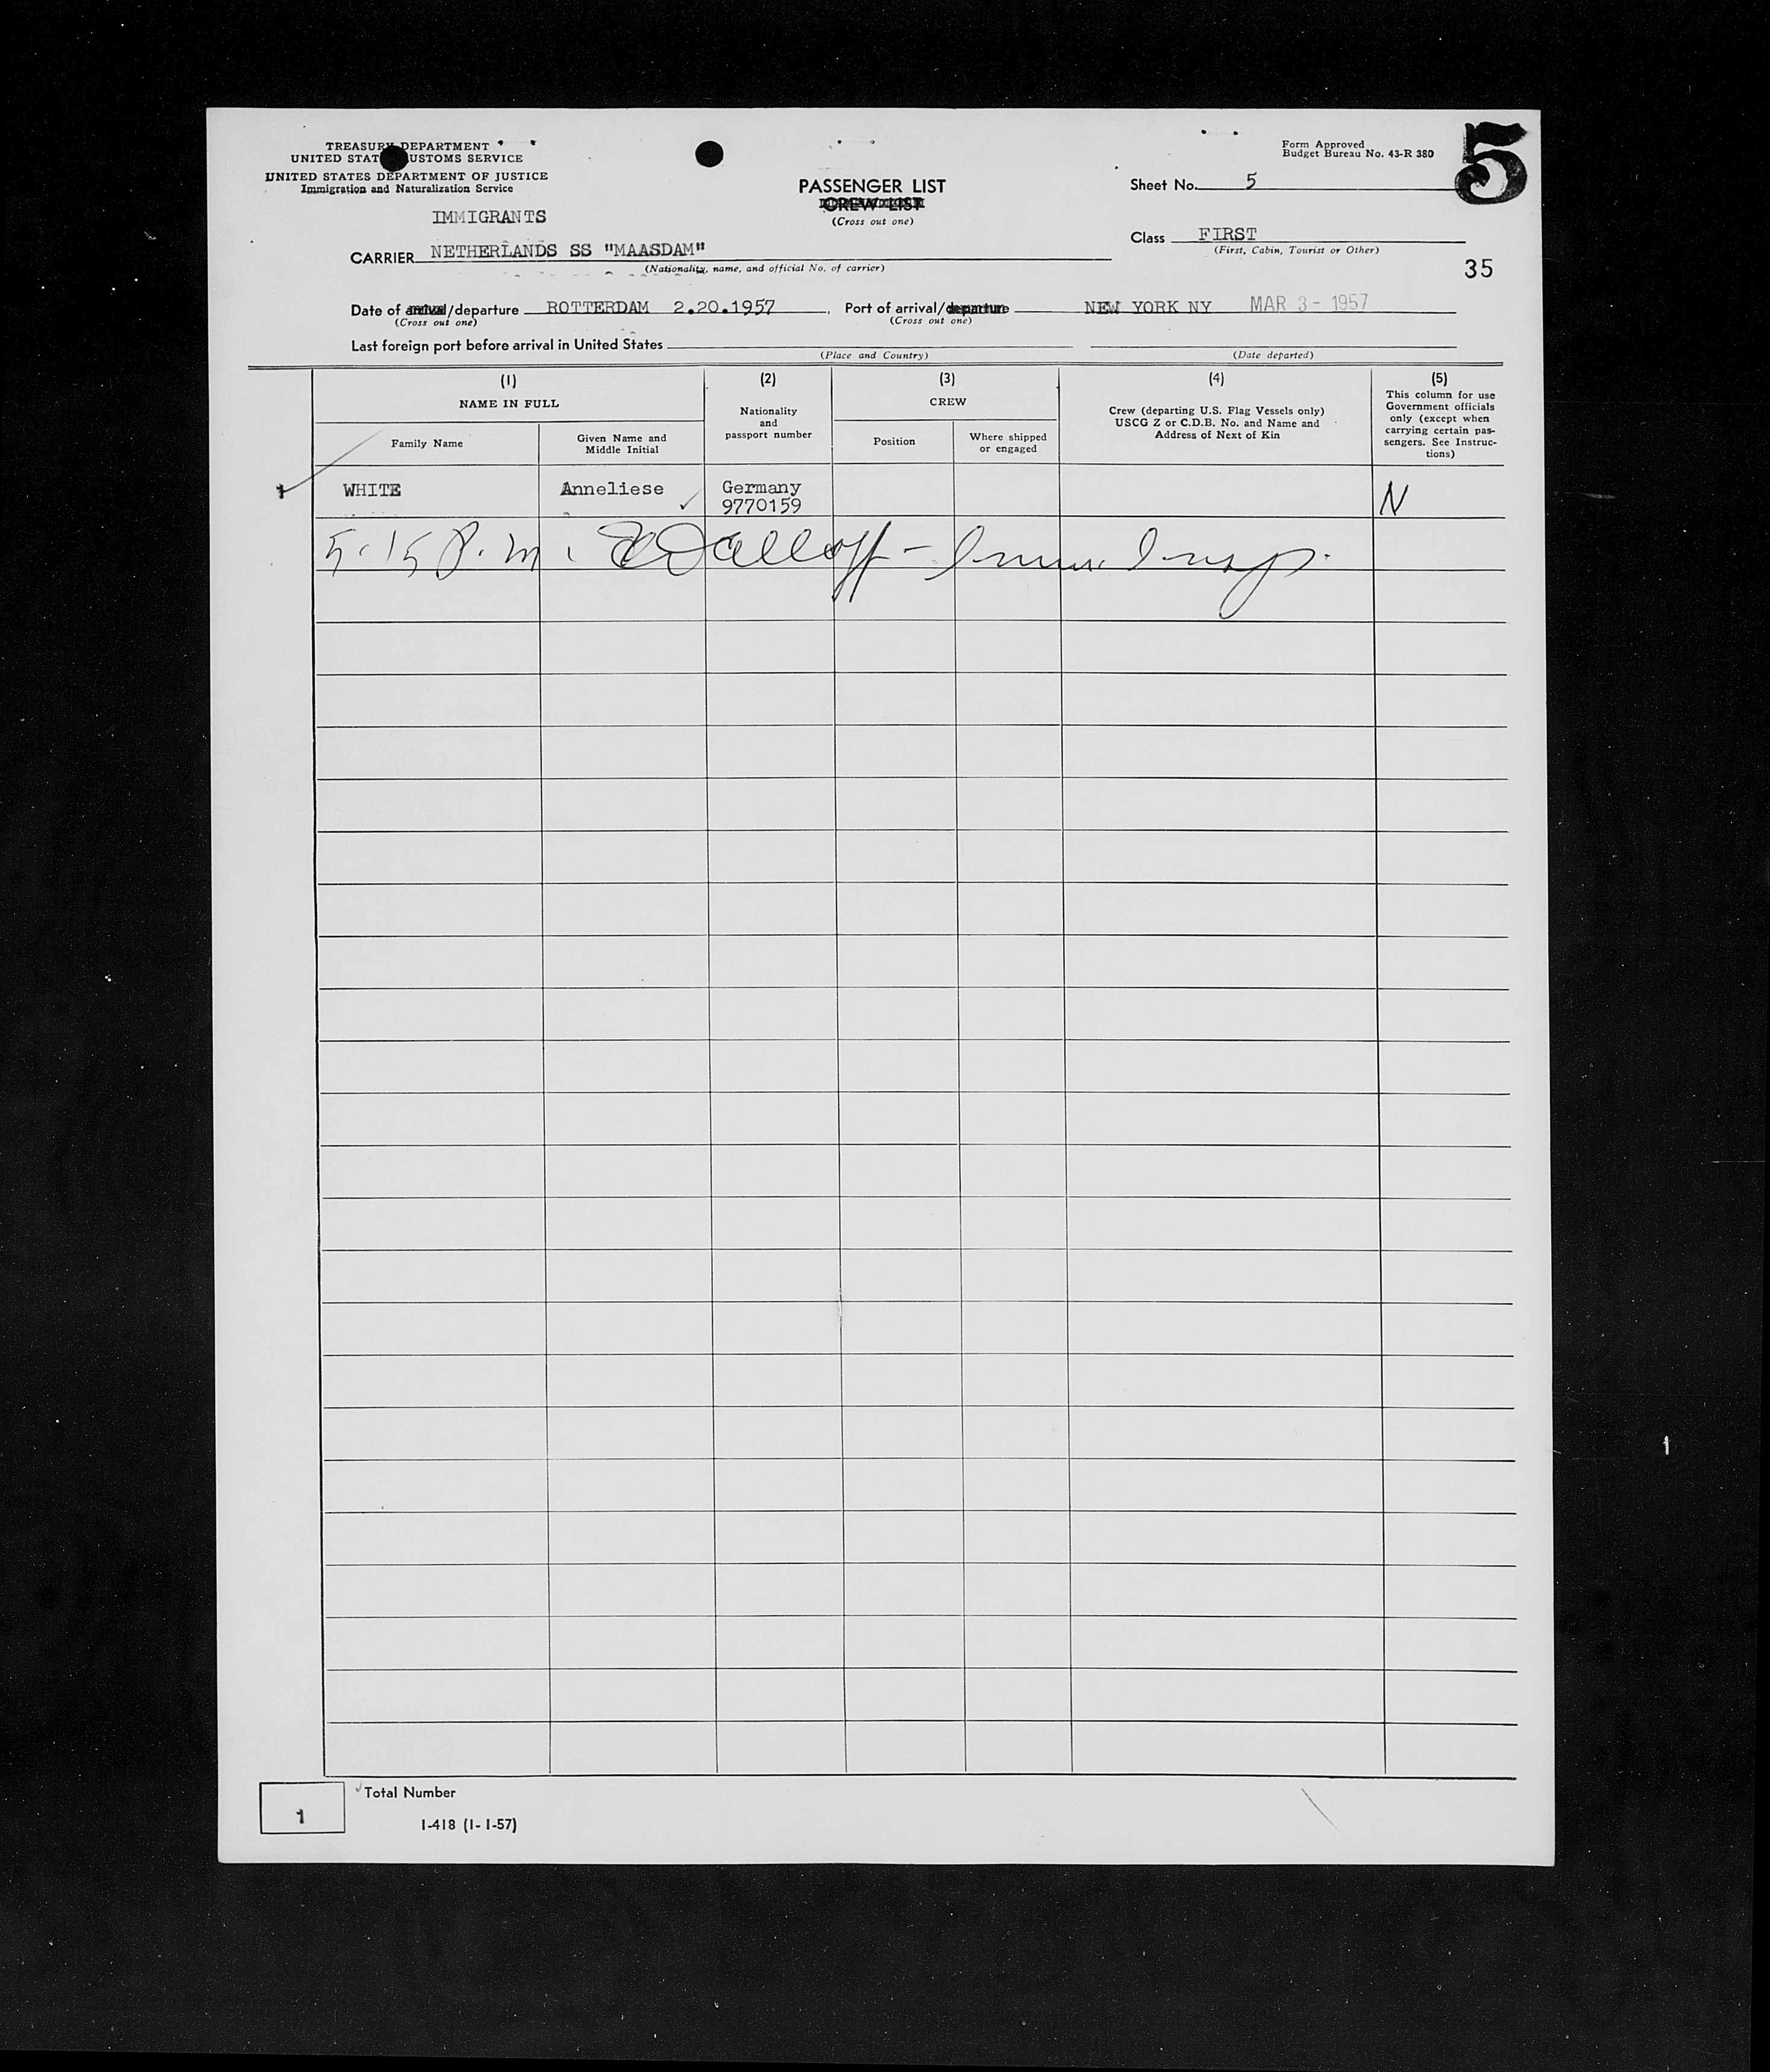 TREASURY DEPARTMENT
UNITED STATES CUSTOMS SERVICE
UNITED STATES DEPARTMENT OF JUSTICE
Immigration and Naturalization Service
Form Approved
Budget Bureau No. 43-R 380
5
PASSENGER LIST
CREW LIST
(Cross out one)
Sheet No. 5
IMMIGRANTS
CARRIER NETHERLANDS SS "MAASDAM"
(Nationality, name, and official No. of carrier)
Class FIRST
(First, Cabin, Tourist or Other)
35
Date of arrival/departure ROTTERDAM 2.20.1957, Port of arrival/departure NEW YORK NY MAR 3- 1957
(Cross out one) (Cross out one)
Last foreign port before arrival in United States
(Place and Country) (Date departed)
(1) (2) (3) (4) (5)
NAME IN FULL
Family Name
Given Name and
Middle Initial
Nationality
and
passport number
CREW
Position
Where shipped
or engaged
Crew (departing U.S. Flag Vessels only)
USCG Z or C.D.B. No. and Name and
Address of Next of Kin
This column for use
Government officials
only (except when
carrying certain pas-
sengers. See Instruc-
tions)
1 WHITE Anneliese Germany N
9770159
5.15 P.m. - Imm. Insp.
Total Number
1
I-418 (1-1-57)
1